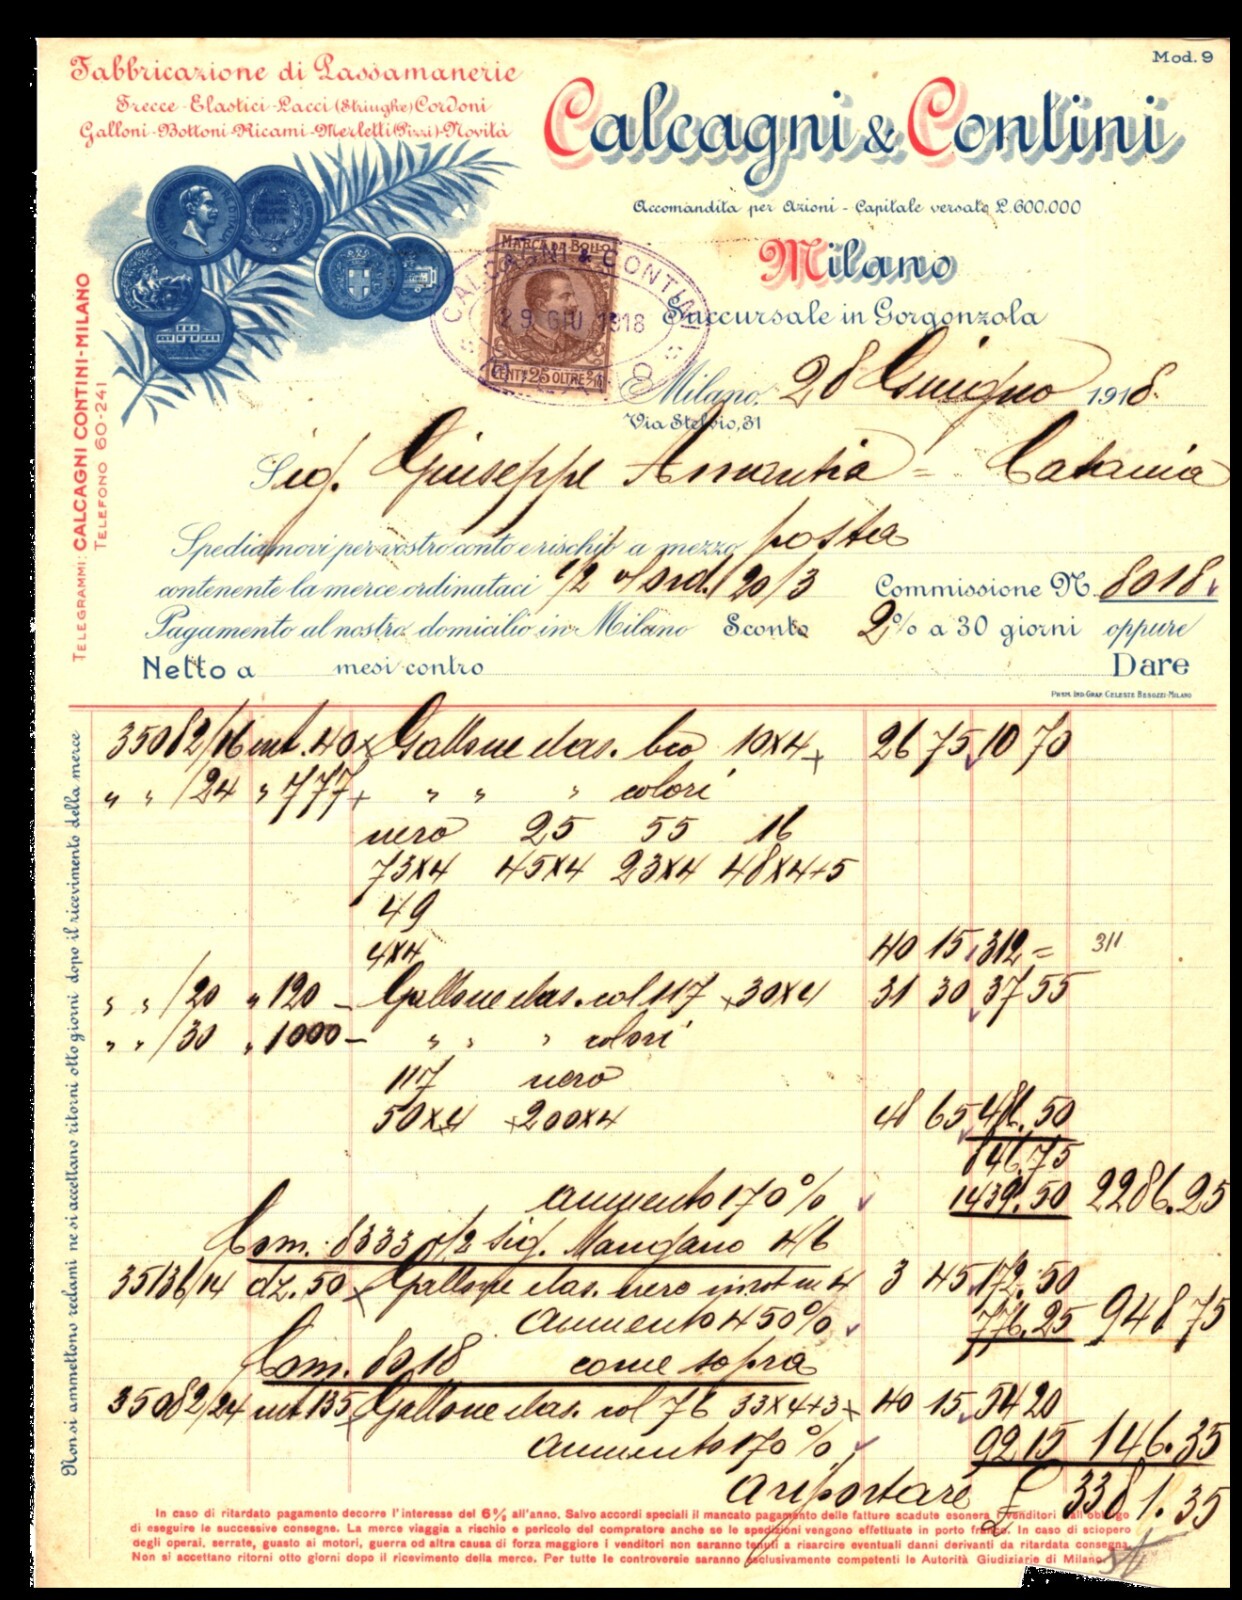 Mod. 9
Fabbricazione di Passamanerie
Trecce-Elastici-Lacci (Stringhe) Cordoni
Galloni-Bottoni-Ricami-Merletti (Pizzi)-Novità
Calcagni & Contini
Accomandita per Azioni - Capitale versato L.600.000
Milano
Succursale in Gorgonzola
MARCA DA BOLLO
CALCAGNI & CONTINI
29 GIU 1918
CENT. 25 OLTRE
Milano, 28 Giugno 1918.
Via Stelvio, 31
TELEGRAMMI: CALCAGNI CONTINI-MILANO
TELEFONO 60-241
Sig. Giuseppe Amantia = Catania
Spediamovi per vostro conto e rischio a mezzo posta
contenente la merce ordinataci 1/2 v/ ord. 20/3 Commissione N. 8018
Pagamento al nostro domicilio in Milano Sconto 2% a 30 giorni oppure
Netto a mesi contro Dare
PREM. IND. GRAF. CELESTE BESOZZI-MILANO
Non si ammettono reclami ne si accettano ritorni otto giorni dopo il ricevimento della merce
35082/16 mt. 40 x Gallone elas. bco 10x4 26 75 10 70
" " /24 " 777 " " " colori
nero 25 55 16
73x4 45x4 23x4 48x4+5
49
4x4 40 15 312 = 311
" " /20 " 120 - Gallone elas. col 117 30x4 31 30 37 55
" " /30 " 1000 - " " " colori
117 nero
50x4 200x4 48 65 486.50
846,75
aumento 170% 1439.50 2286.25
Com. 8333 1/2 Sig. Mangano 4/6
35136/14 dz. 50 x Gallone elas. nero 3 45 172.50
aumento 450% 776.25 948 75
Com. 8018 come sopra
35082/24 mt 135 Gallone elas. col 76 33x4+3 40 15 54 20
aumento 170% 92 15 146.35
a riportare £ 3381.35
In caso di ritardato pagamento decorre l'interesse del 6% all'anno. Salvo accordi speciali il mancato pagamento delle fatture scadute esonera i venditori dall'obbligo
di eseguire le successive consegne. La merce viaggia a rischio e pericolo del compratore anche se le spedizioni vengono effettuate in porto franco. In caso di sciopero
degli operai, serrate, guasto ai motori, guerra od altra causa di forza maggiore i venditori non saranno tenuti a risarcire eventuali danni derivanti da ritardata consegna.
Non si accettano ritorni otto giorni dopo il ricevimento della merce. Per tutte le controversie saranno esclusivamente competenti le Autorità Giudiziarie di Milano.